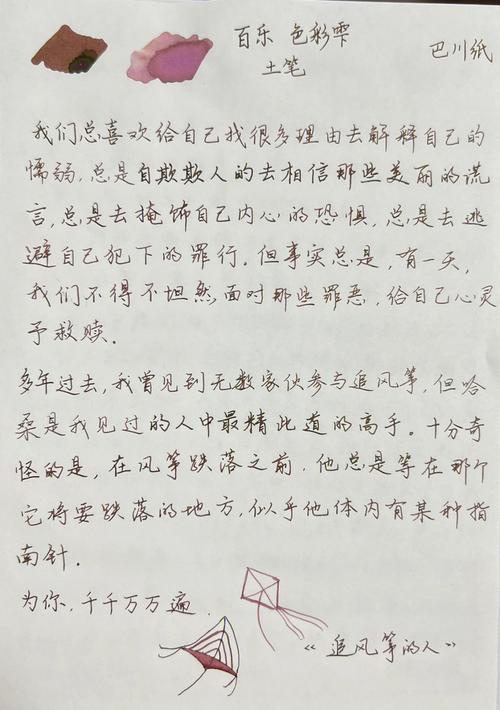 百乐 色彩雫
土笔
巴川纸
我们总喜欢给自己找很多理由去解释自己的
懦弱,总是自欺欺人的去相信那些美丽的谎
言,总是去掩饰自己内心的恐惧,总是去逃
避自己犯下的罪行.但事实总是,有一天,
我们不得不坦然,面对那些罪恶,给自己心灵
予救赎.
多年过去,我曾见到无数家伙参与追风筝,但哈
桑是我见过的人中最精此道的高手。十分奇
怪的是,在风筝跌落之前,他总是等在那个
它将要跌落的地方,似乎他体内有某种指
南针.
为你,千千万万遍.
“追风筝的人”